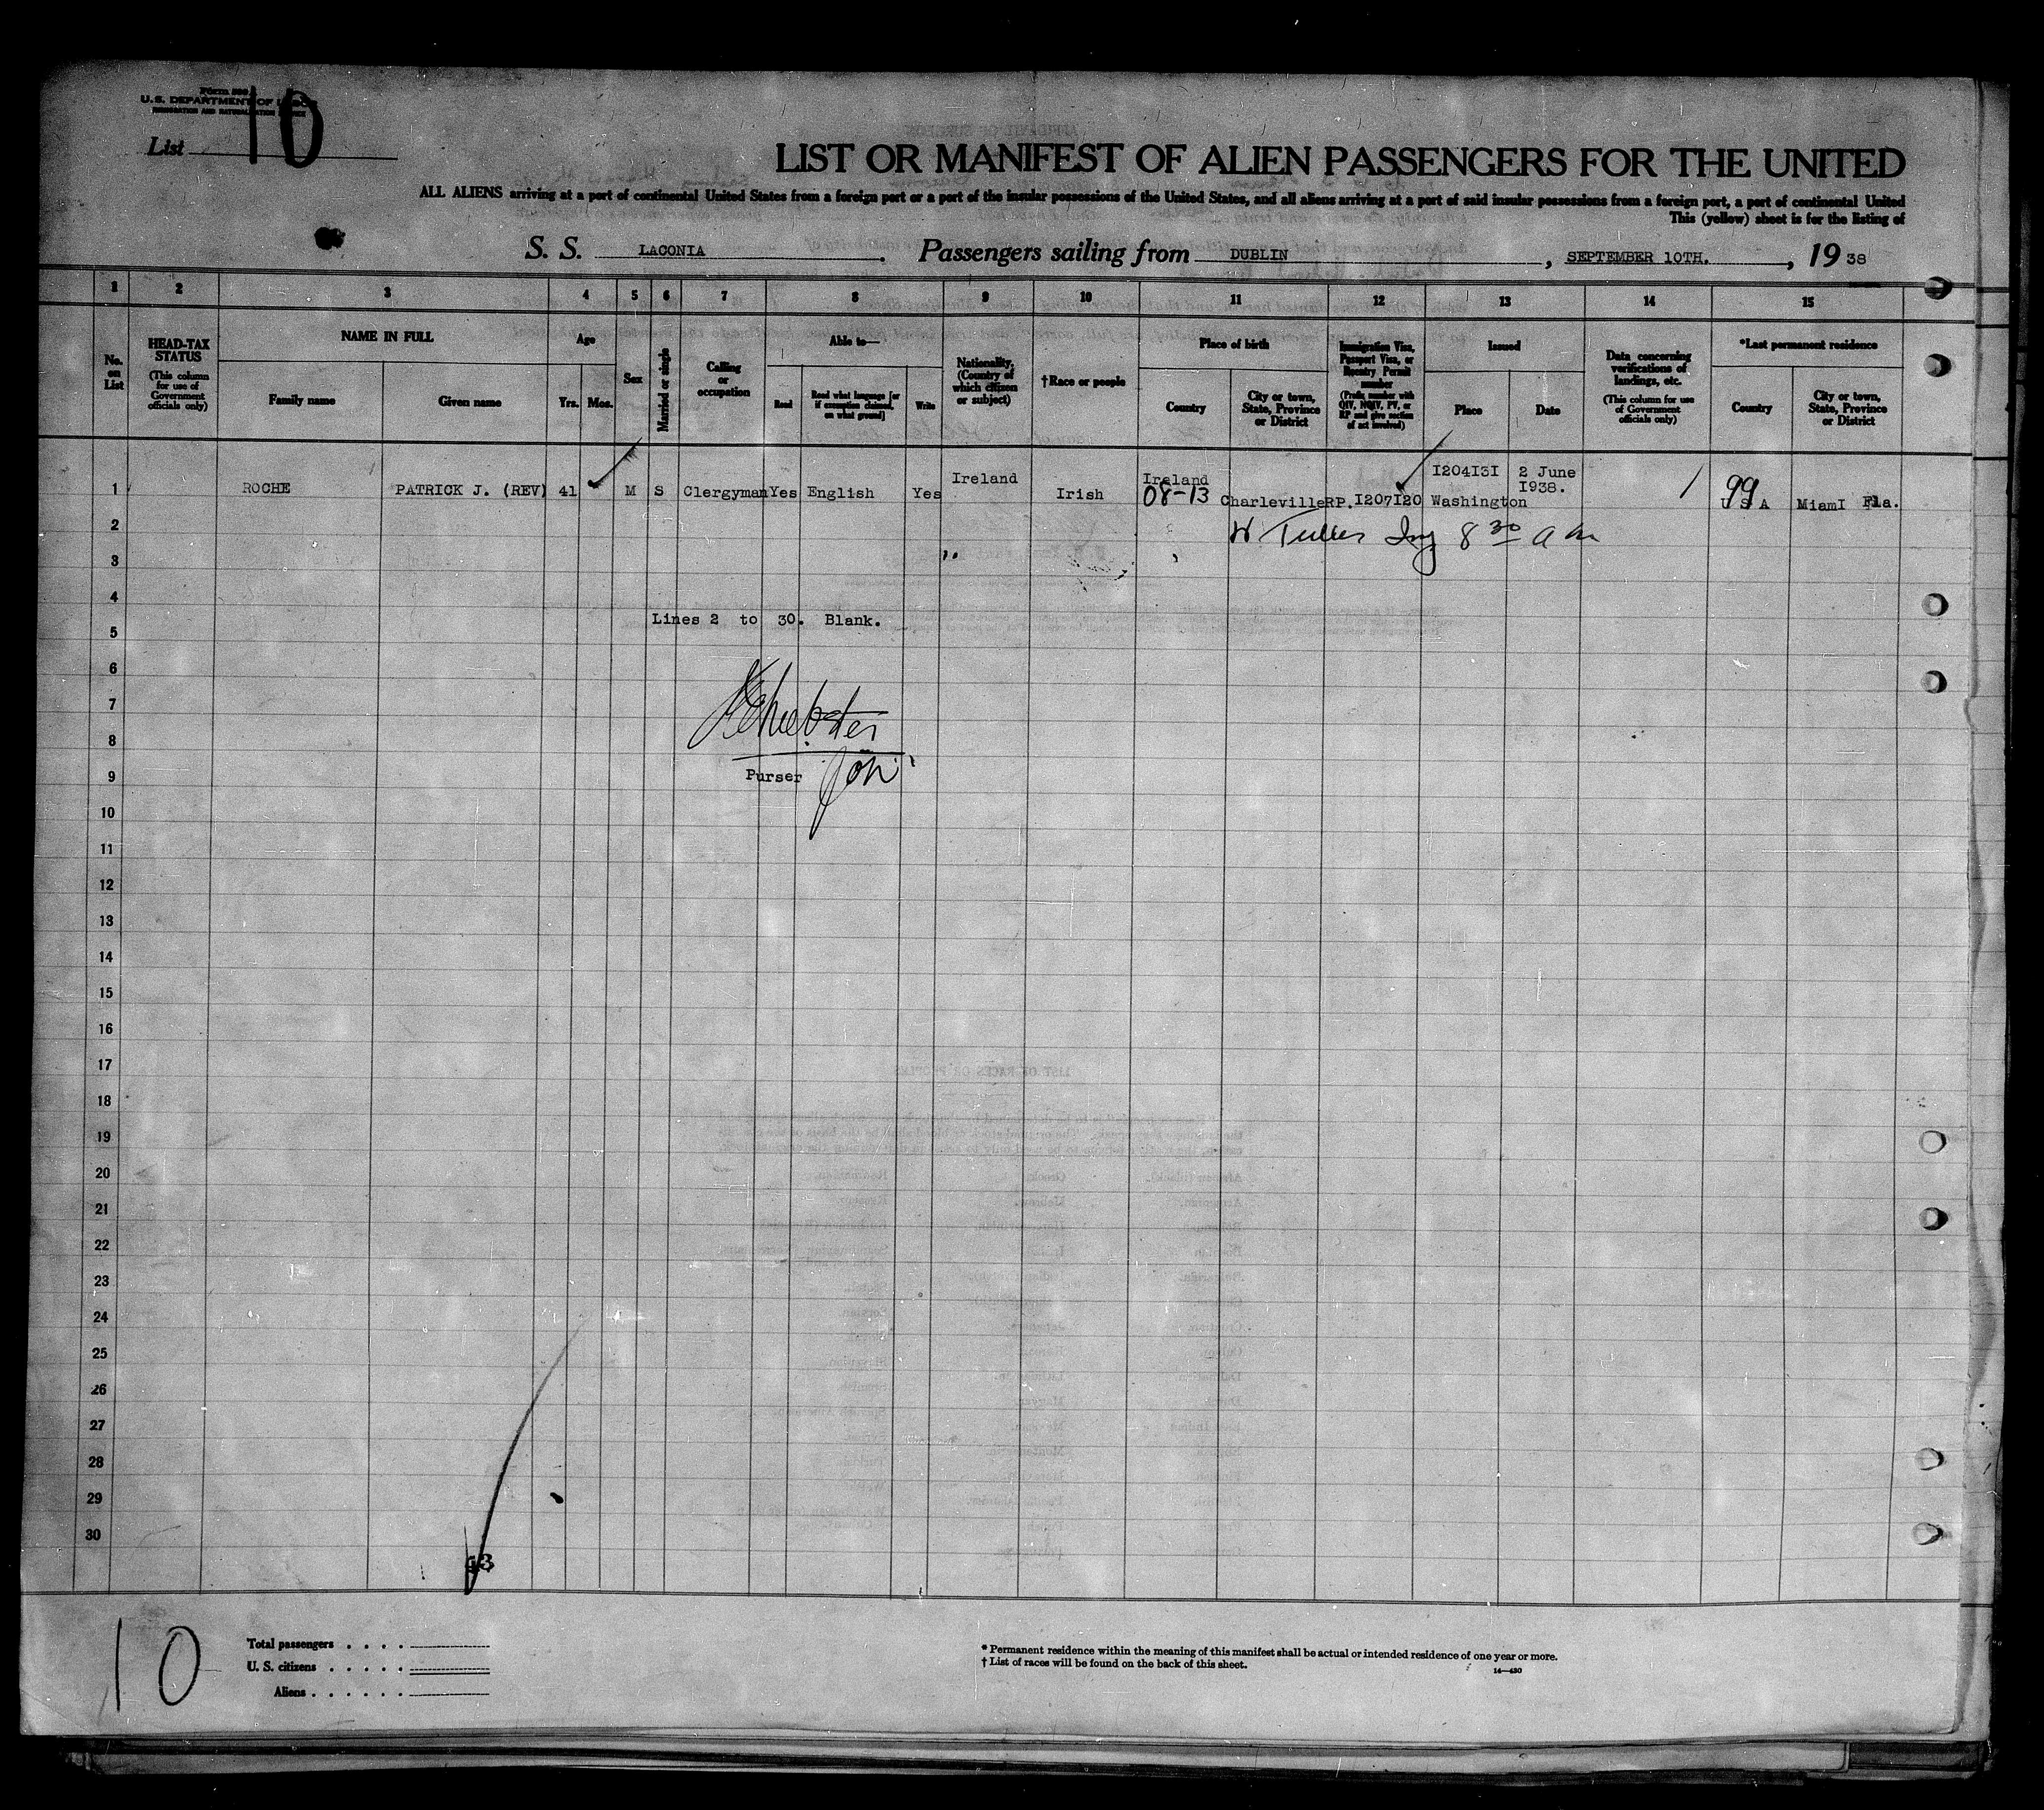 Form 500
U.S. DEPARTMENT OF LABOR
IMMIGRATION AND NATURALIZATION SERVICE
List 10
LIST OR MANIFEST OF ALIEN PASSENGERS FOR THE UNITED
ALL ALIENS arriving at a port of continental United States from a foreign port or a port of the insular possessions of the United States, and all aliens arriving at a port of said insular possessions from a foreign port, a port of continental United
This (yellow) sheet is for the listing of
S. S. LACONIA. Passengers sailing from DUBLIN, SEPTEMBER 10TH., 1938
1 2 3 4 5 6 7 8 9 10 11 12 13 14 15
No. on List
HEAD-TAX STATUS
(This column for use of Government officials only)
NAME IN FULL
Family name
Given name
Age
Yrs.
Mos.
Sex
Married or single
Calling or occupation
Able to—
Read
Read what language [or if exemption claimed, on what ground]
Write
Nationality. (Country of which citizen or subject)
†Race or people
Place of birth
Country
City or town, State, Province or District
Immigration Visa, Passport Visa, or Reentry Permit number
(Prefix number with QIV, NQIV, PV, or RP and give section of act involved)
Issued
Place
Date
Data concerning verifications of landings, etc.
(This column for use of Government officials only)
*Last permanent residence
Country
City or town, State, Province or District
1 ROCHE PATRICK J. (REV) 41 M S Clergyman Yes English Yes Ireland Irish Ireland 08-13 Charleville RP. I207I20 I204I3I Washington 2 June I938. 99 U S A MiamI Fla.
2
8 30 a m
3
4
Lines 2 to 30. Blank.
5
6
7
8
9
Purser
10
11
12
13
14
15
16
17
18
19
20
21
22
23
24
25
26
27
28
29
30
10
Total passengers
U. S. citizens
Aliens
* Permanent residence within the meaning of this manifest shall be actual or intended residence of one year or more.
† List of races will be found on the back of this sheet.
14—430